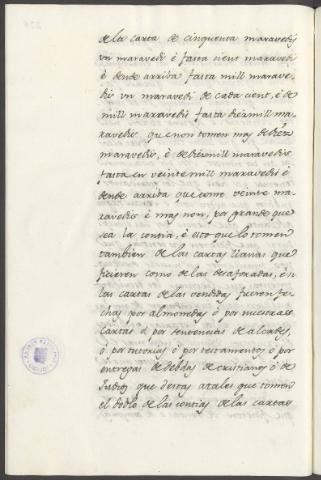 de la carta de cinquenta maravedis
un maravedi è fasta cient maravedi
è dende arriba fasta mill marave-
dis un maravedi de cada cient, è de
mill maravedis fasta diezmill ma-
ravedis que non tomen mas de diez
maravedis, è de diezmill maravedis
fasta en veinte mill maravedis è
dende arriba que tome veinte ma-
ravedis è mas non, por grande que
sea la contia, è esto que lo tomen
tambien de las cartas llanas que
ficieren como de las desaforadas, è si
las cartas de las vendidas fueren fe-
chas por almonedas ò por nuestras
Cartas ò por sentencias de alcaldes,
ò por tutorias ò por testamentos ò por
entregas de debdas de cristianos ò de
Judios que destas atales que tomen
el doblo de las contias de las cartas